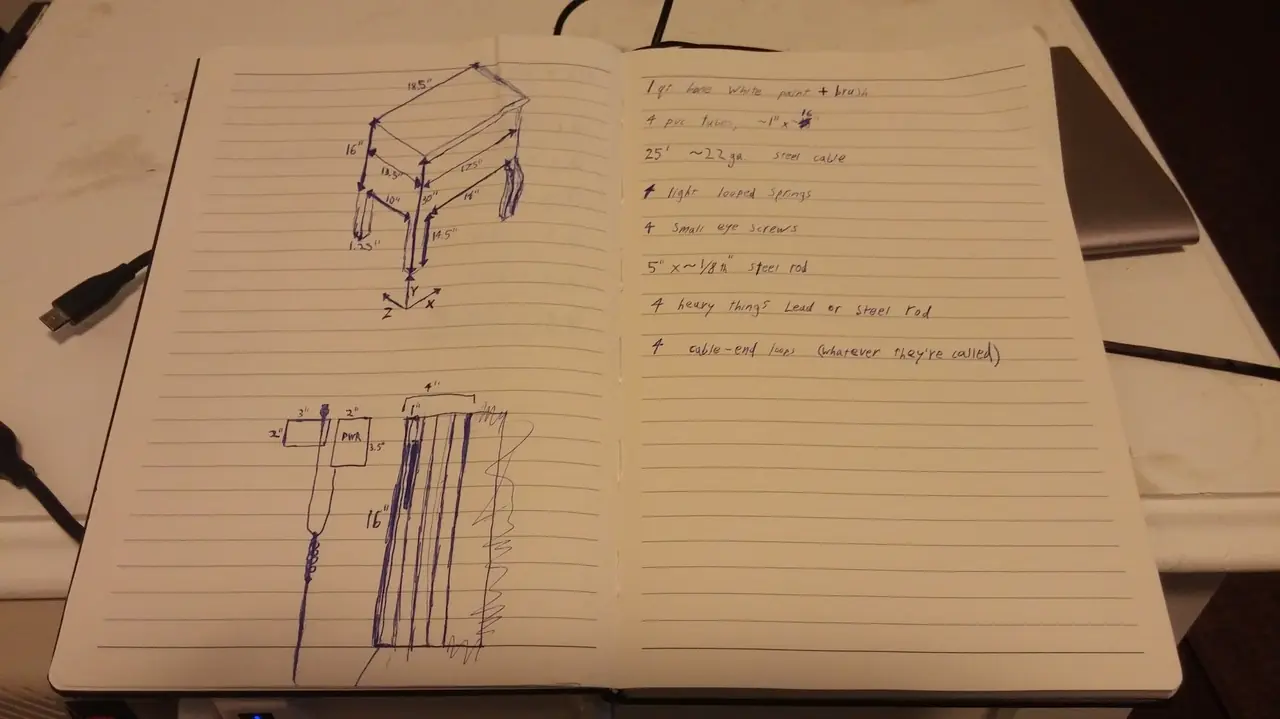 18.5"
16"
12.5"
30"
10"
14"
14.5"
1.25"
Y
X
Z
4"
3"
2"
1"
2"
PWR
3.5"
16"
1 qt white paint + brush
4 pvc tubes, ~1" x ~ 16
25' ~22 ga. steel cable
light looped springs
4 small eye screws
5" x ~1/8th" steel rod
4 heavy things Lead or steel rod
4 cable-end loops (whatever they're called)